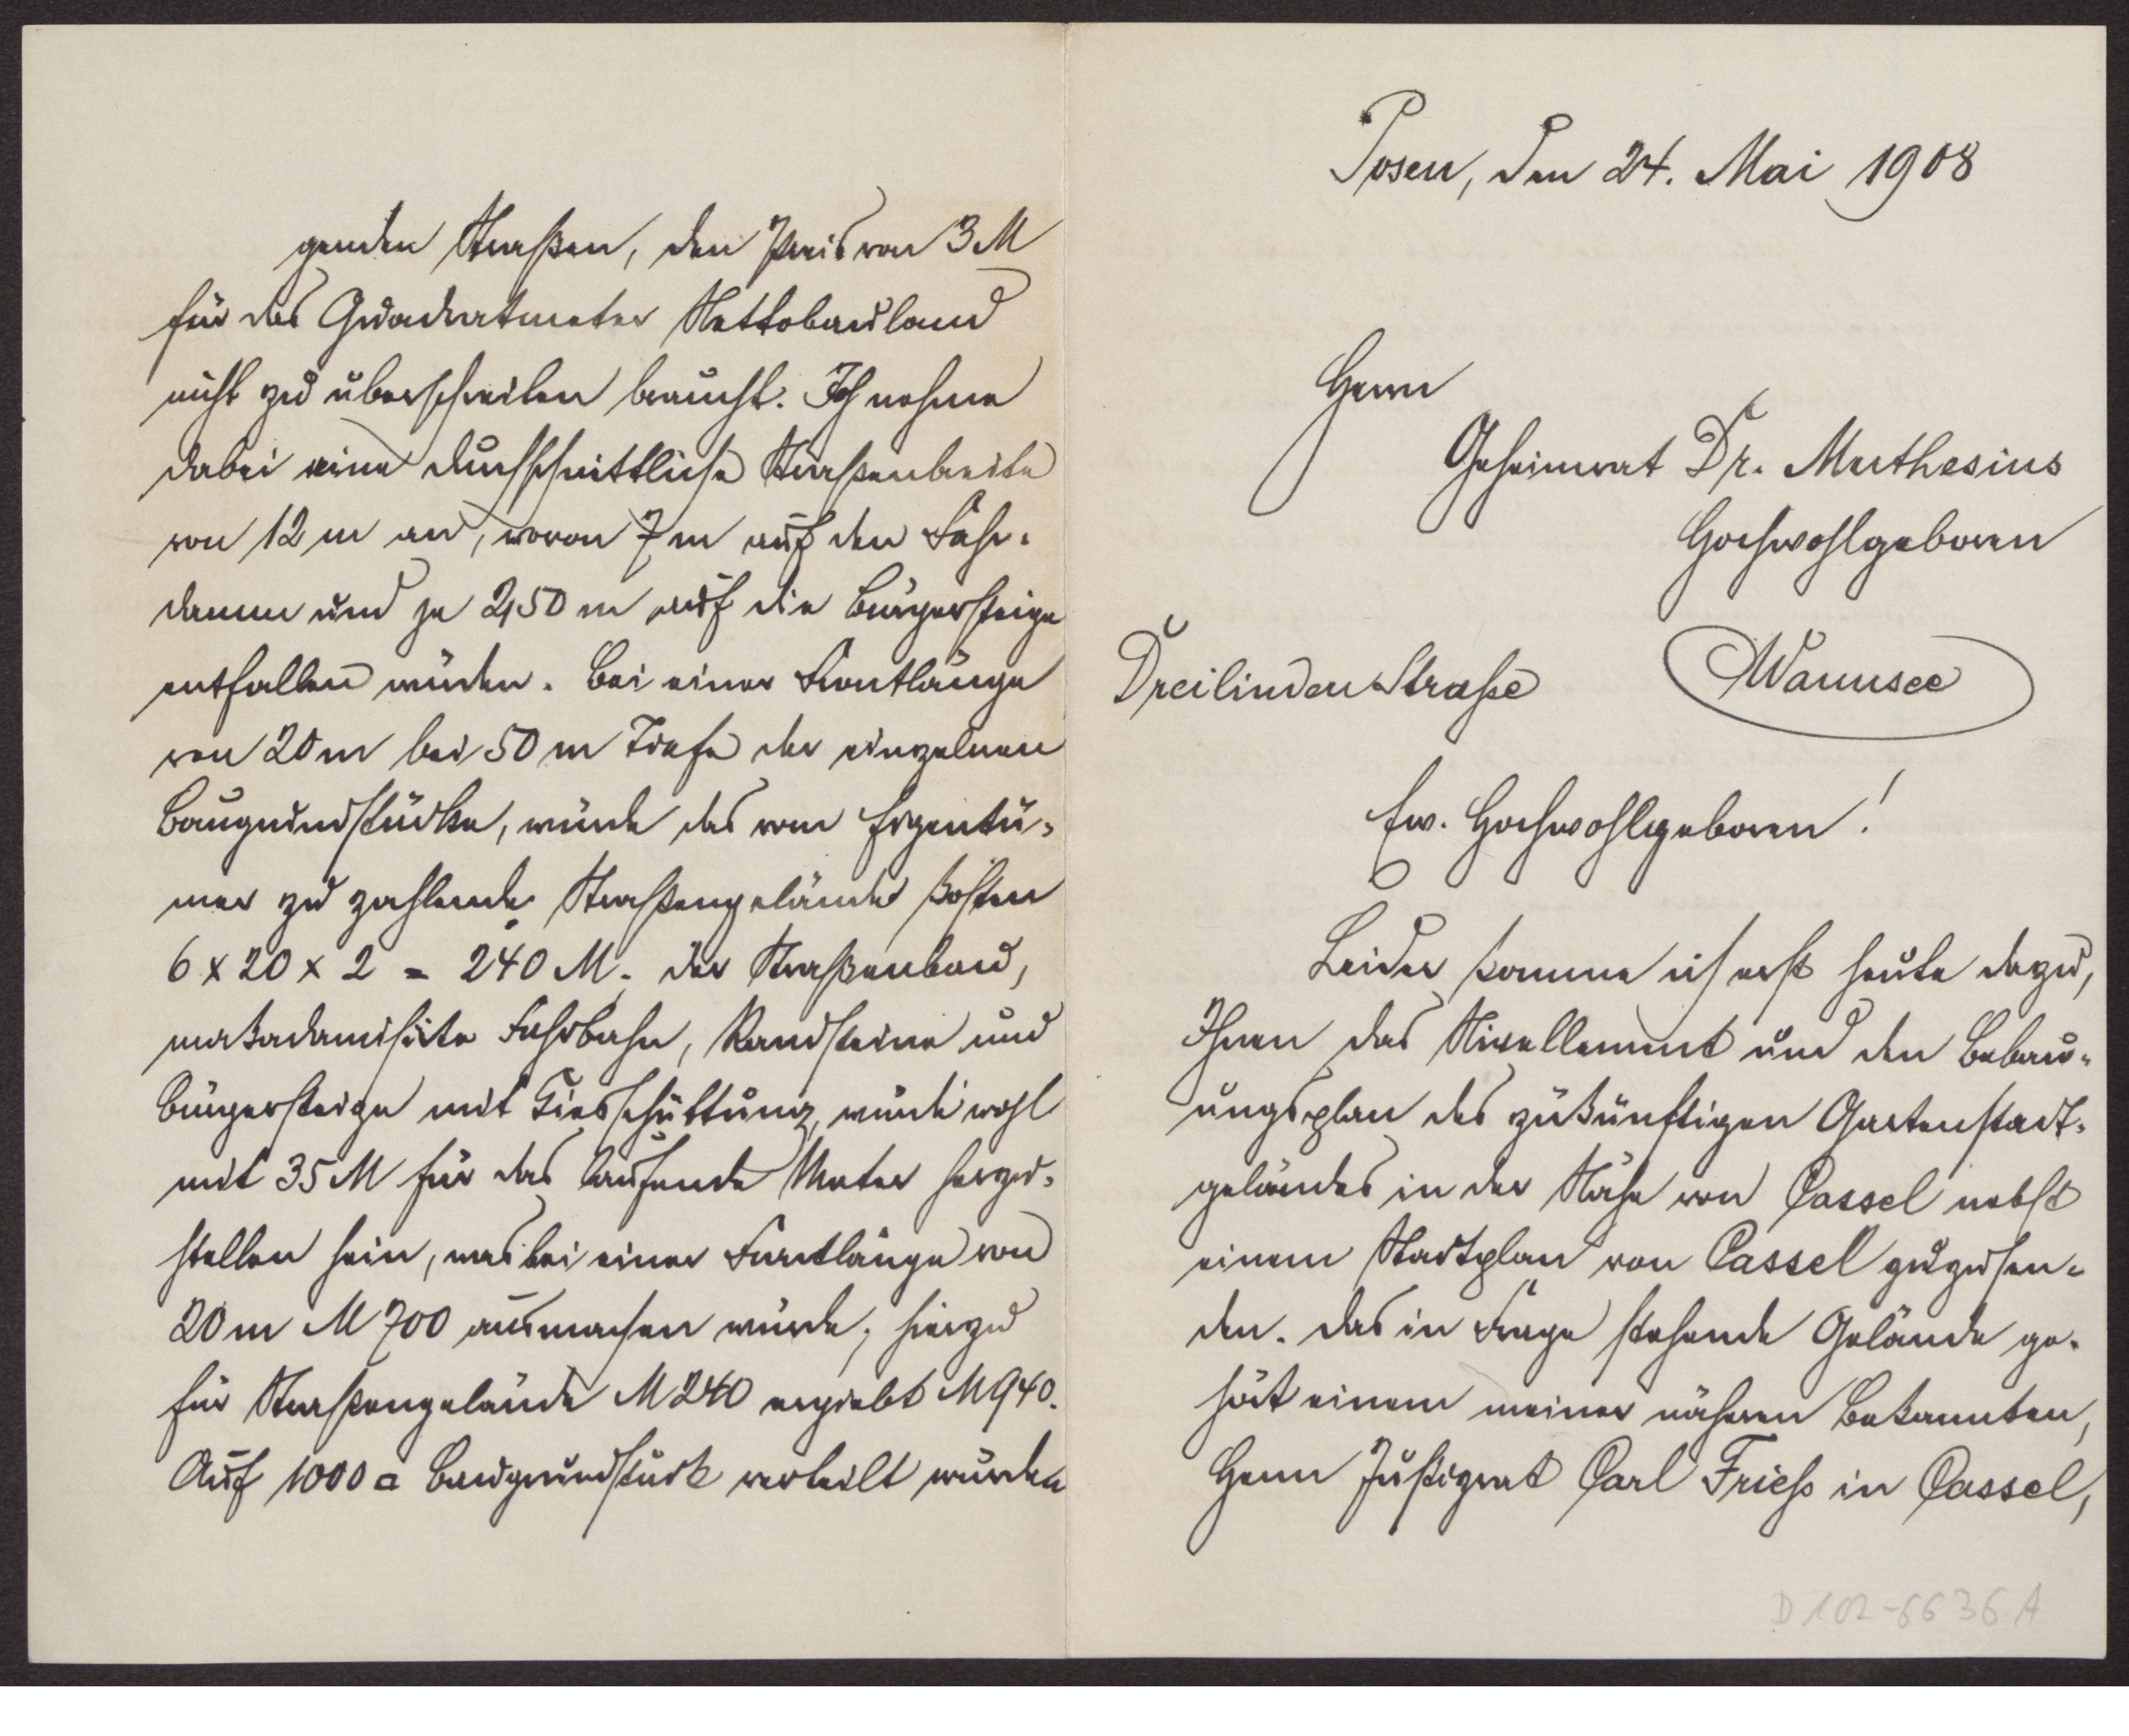 Posen, den 24. Mai 1908
Herrn
Geheimrat Dr. Muthesius
Hochwohlgeboren
Dreilindenstraße Wannsee
Ew. Hochwohlgeboren!
Leider komme ich erst heute dazu,
Ihnen das Nivellement und den Bebau-
ungsplan des zukünftigen Gartenstadt-
geländes in der Nähe von Cassel nebst
einem Stadtplan von Cassel zuzusen-
den. Das in Frage stehende Gelände ge-
hört einem meiner näheren Bekannten,
Herrn Justizrat Carl Frieß in Cassel,
D 102-6636 A
genden Straßen, den Preis von 3 M
für das Quadratmeter Nettobauland
nicht zu überschreiten braucht. Ich nehme
dabei eine durchschnittliche Straßenbreite
von 12 m an, wovon 7 m auf den Fahr-
damm und je 2,50 m auf die Bürgersteige
entfallen würden. Bei einer Frontlänge
von 20 m bei 50 m Tiefe der einzelnen
Baugrundstücke, würde das vom Eigentü-
mer zu zahlende Straßengelände kosten
6 x 20 x 2 = 240 M. Der Straßenbau,
makadamisirte Fahrbahn, Randsteine und
Bürgersteige mit Kiesschüttung, würde wohl
mit 35 M für das laufende Meter herzu-
stellen sein, was bei einer Frontlänge von
20 m M 700 ausmachen würde; hierzu
für Straßengelände M 240 ergiebt M 940.
Auf 1000 □ Baugrundstück verteilt würden